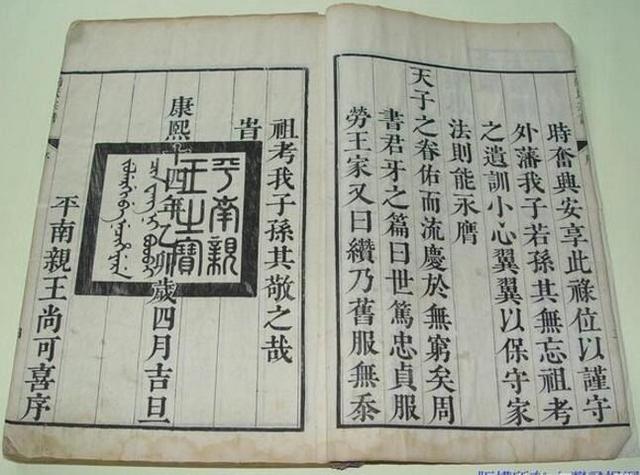 時奮興安享此祿位以謹守
外藩我子若孫其無忘祖考
之遺訓小心翼翼以保守家
法則能永膺
天子之眷佑而流慶於無窮矣周
書君牙之篇曰世篤忠貞服
勞王家又曰纘乃舊服無忝
祖考我子孫其敬之哉
旹
康熙十四年乙卯歲四月吉旦
平南親王之寶
平南親王尚可喜序